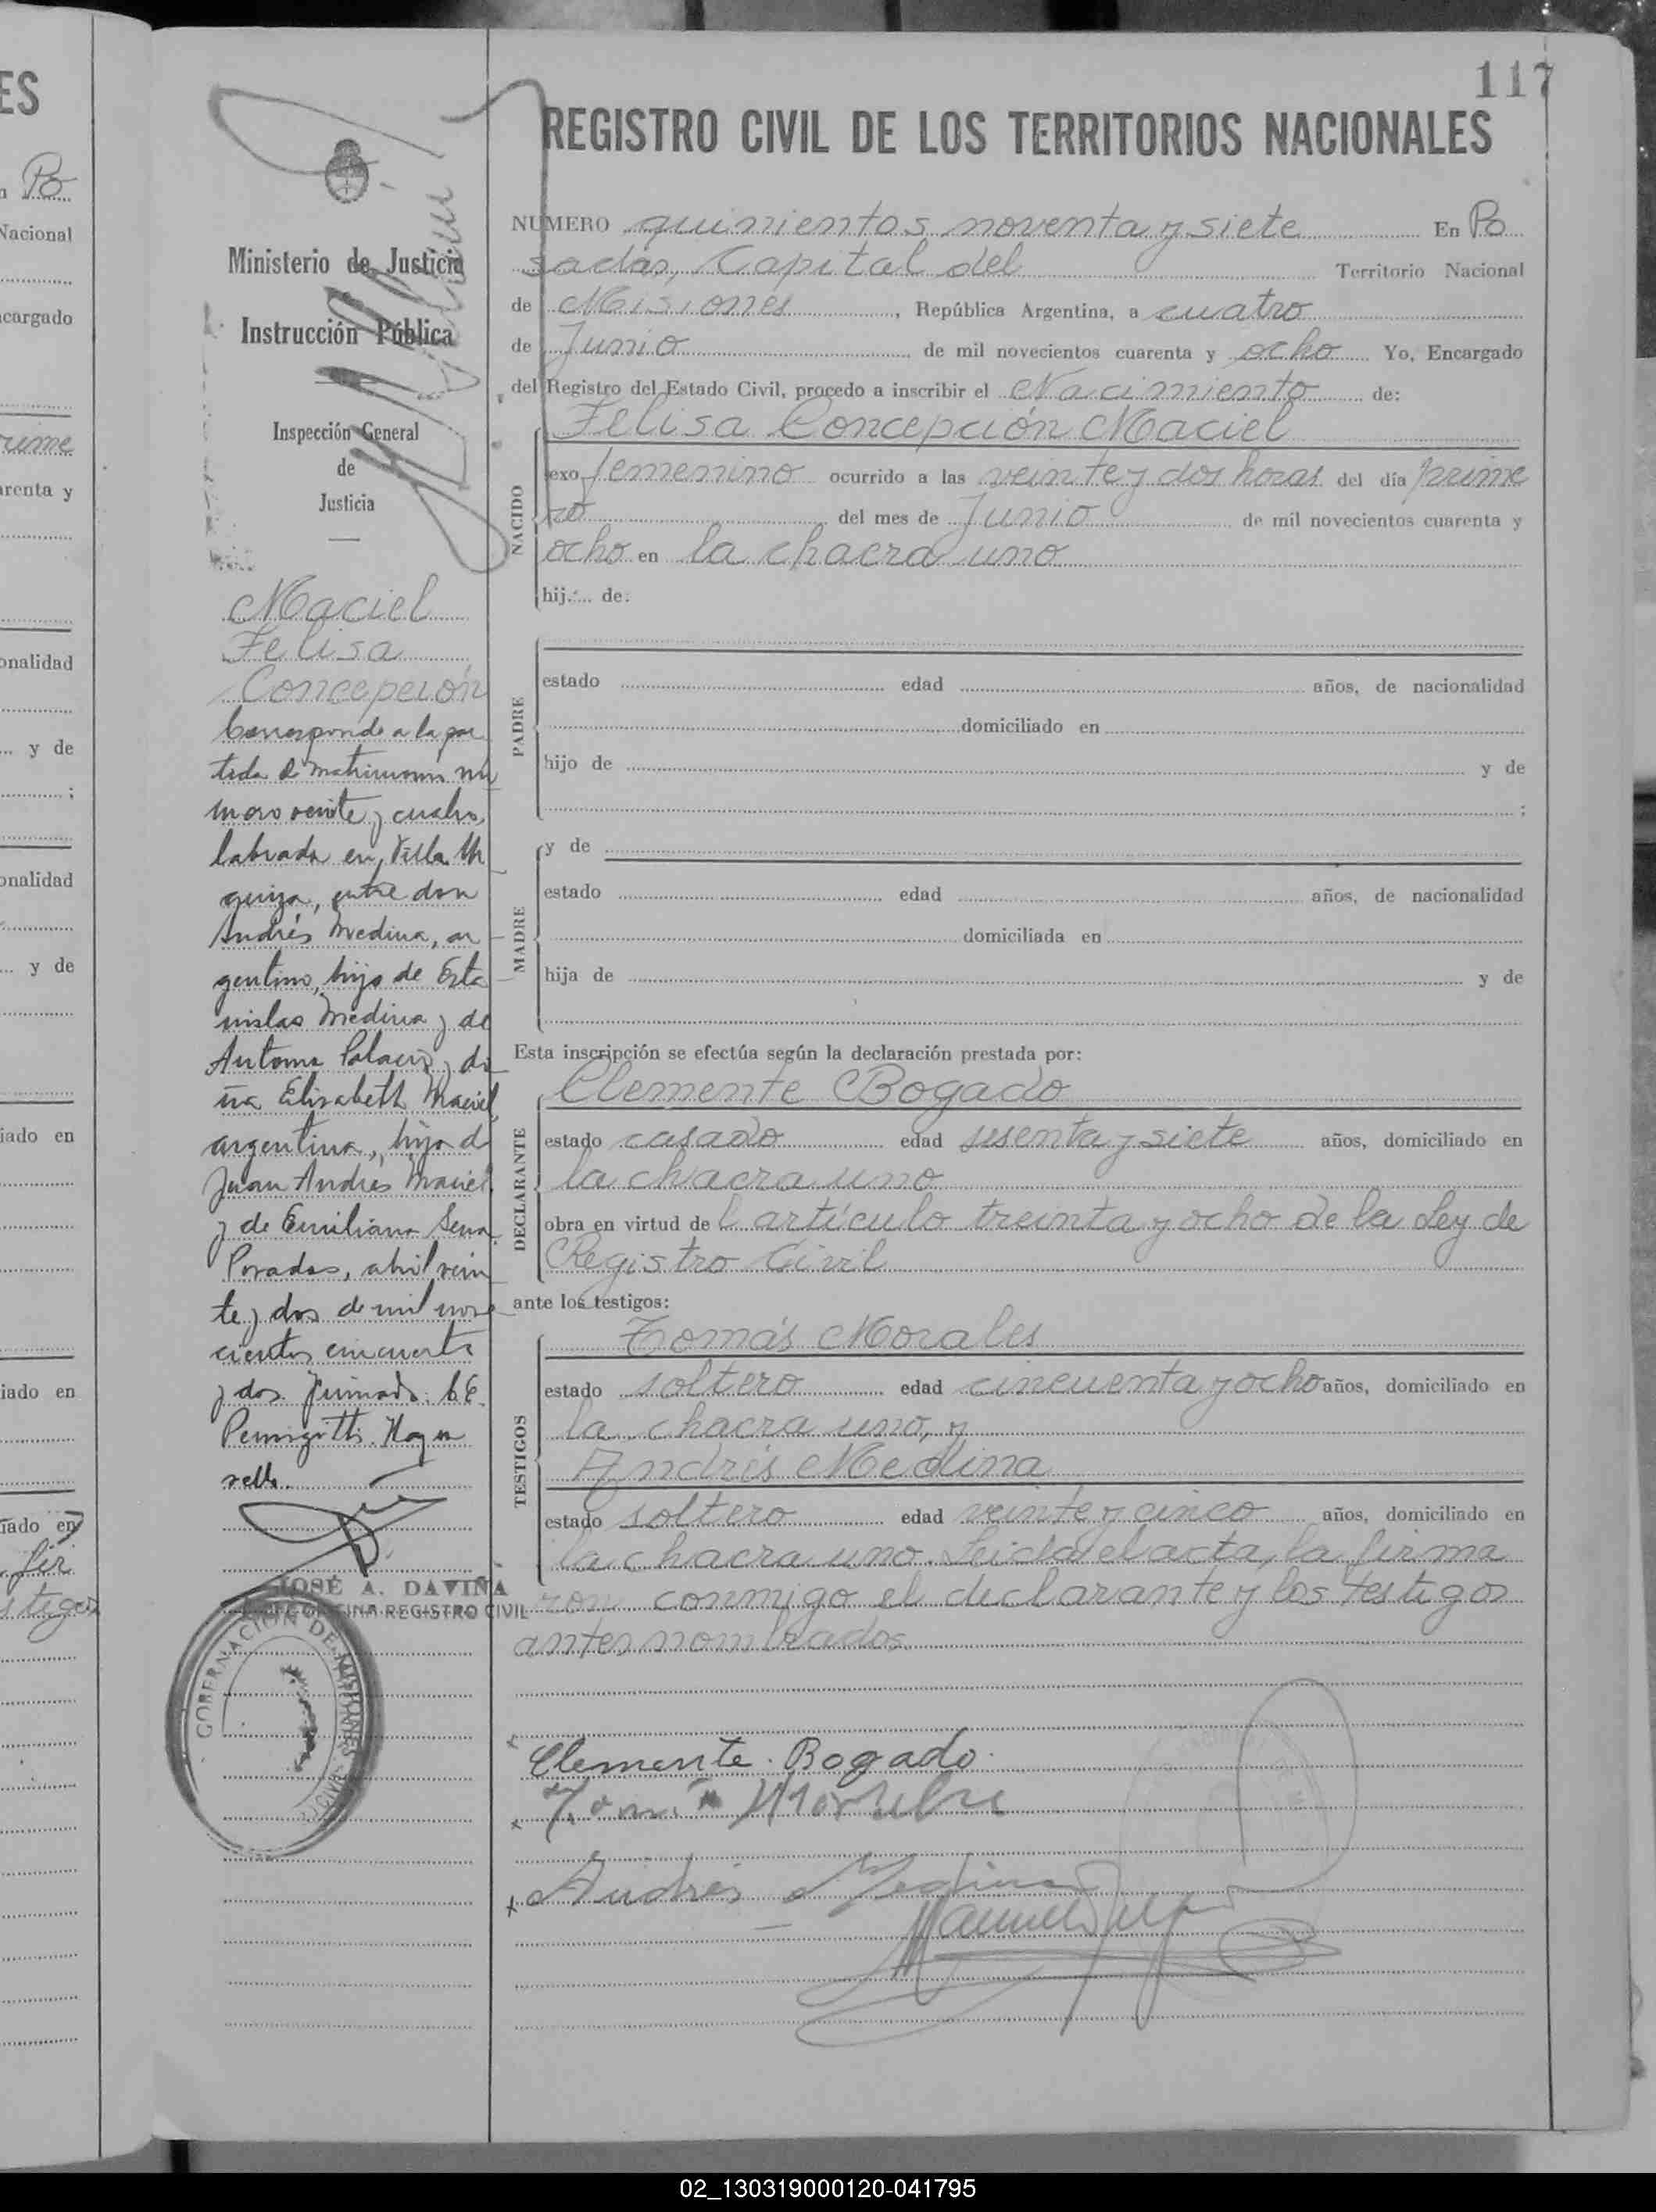 117
REGISTRO CIVIL DE LOS TERRITORIOS NACIONALES
NUMERO quinientos noventa y siete En Po
sadas, Capital del Territorio Nacional
de Misiones, República Argentina, a cuatro
de Junio de mil novecientos cuarenta y ocho Yo, Encargado
del Registro del Estado Civil, procedo a inscribir el Nacimiento de:
Felisa Concepción Maciel
NACIDO
sexo femenino ocurrido a las veinte y dos horas del día prime
ro del mes de Junio de mil novecientos cuarenta y
ocho en la chacra uno
hij... de:
PADRE
estado edad años, de nacionalidad
domiciliado en
hijo de y de
;
MADRE
y de
estado edad años, de nacionalidad
domiciliada en
hija de y de
Esta inscripción se efectúa según la declaración prestada por:
Clemente Bogado
DECLARANTE
estado casado edad sesenta y siete años, domiciliado en
la chacra uno
obra en virtud del artículo treinta y ocho de la Ley de
Registro Civil
ante los testigos:
Tomás Morales
TESTIGOS
estado soltero edad cincuenta y ocho años, domiciliado en
la chacra uno, y
Andrés Medina
estado soltero edad veinte y cinco años, domiciliado en
la chacra uno. Leída el acta, la firma
ron conmigo el declarante y los testigos
antes nombrados
Clemente Bogado
Andrés Medina
Ministerio de Justicia
Instrucción Pública
Inspección General
de
Justicia
Maciel
Felisa
Concepción
Corresponde a la par
tida de matrimonio nú
mero veinte y cuatro
labrada en Villa Ur
quiza, entre don
Andrés Medina, ar
gentino, hijo de Esta
nislao Medina y de
Antonia Palacio y do
ña Elisabeth Maciel,
argentina, hija de
Juan Andrés Maciel
y de Emiliana Sena
Posadas, abril vein
te y dos de mil nove
cientos cincuenta
y dos. Firmado: C. E.
Hay un
sello.
JOSÉ A. DAVIÑA
REGISTRO CIVIL
GOBERNACIÓN DE MISIONES
ES
Po
Nacional
ncargado
prime
arenta y
onalidad
... y de
;
onalidad
... y de
iado en
iado en
iado en
fir
stigos
02_130319000120-041795